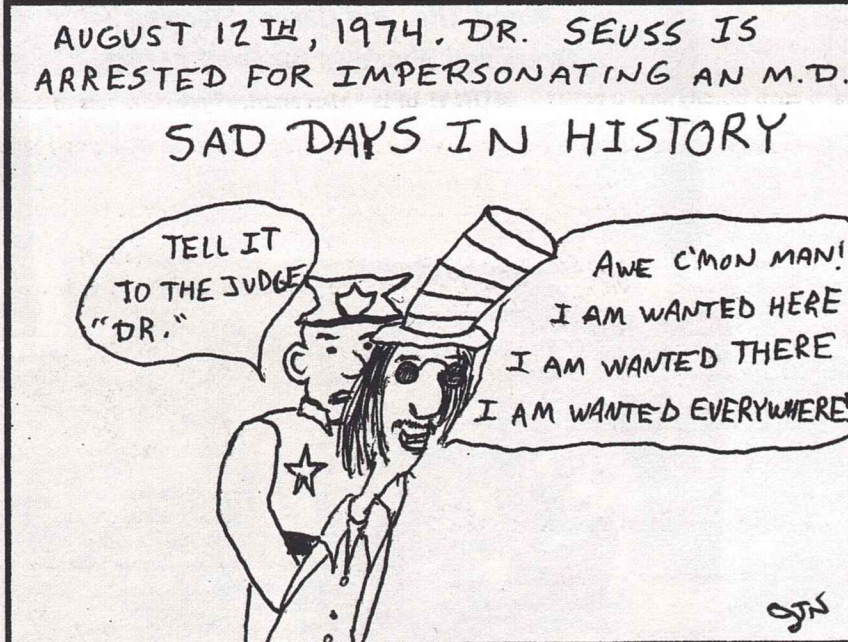 AUGUST 12TH, 1974. DR. SEUSS IS
ARRESTED FOR IMPERSONATING AN M.D.
SAD DAYS IN HISTORY
TELL IT
TO THE JUDGE
"DR."
AWE C'MON MAN!
I AM WANTED HERE
I AM WANTED THERE
I AM WANTED EVERYWHERE!
JTN